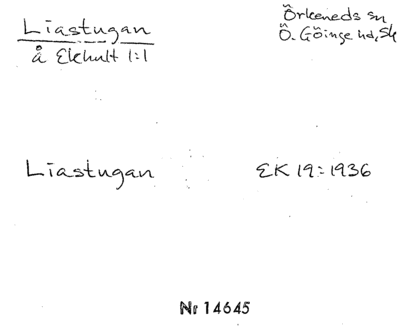 Liastugan
å Ekhult 1:1
Örkeneds sn
Ö. Göinge hd, Sk
Liastugan
EK 19:1936
Nr 14645